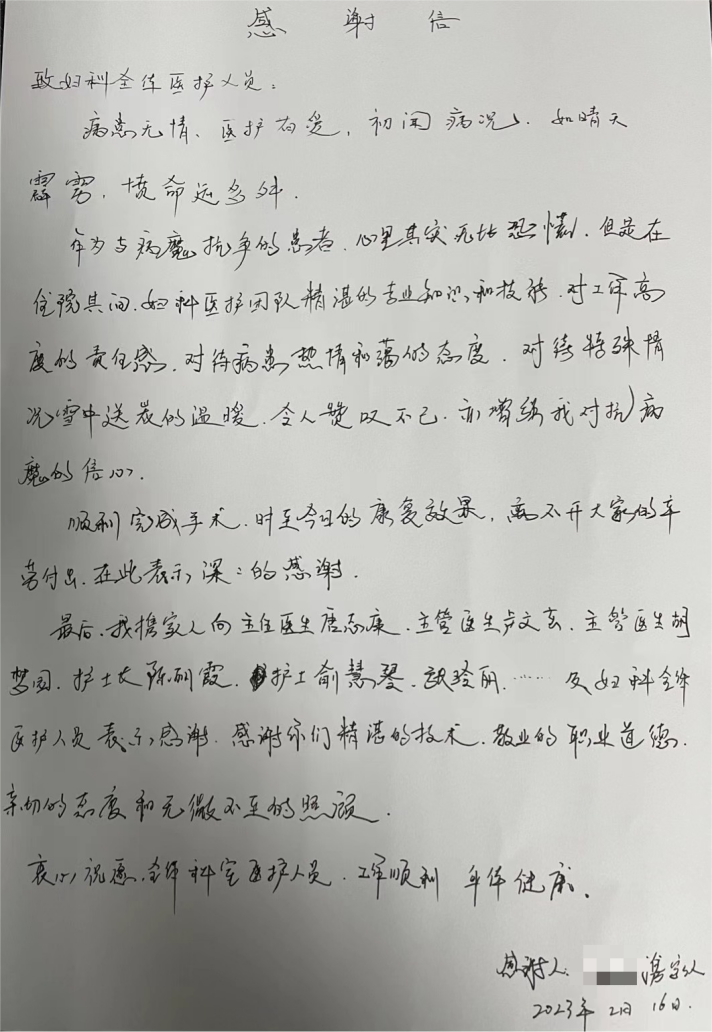 感谢信
致妇科全体医护人员：
病患无情、医护有爱，初闻病况、如晴天
霹雳，愤命运多舛.
作为与病魔抗争的患者，心里其实无比恐惧，但是在
住院其间，妇科医护团队精湛的专业知识和技能，对工作高
度的责任感，对待病患热情和蔼的态度，对待特殊情
况雪中送炭的温暖，令人赞叹不已，亦增续我对抗病
魔的信心.
顺利完成手术，时至今日的康复效果，离不开大家的辛
劳付出，在此表示深深的感谢.
最后，我携家人向主任医生唐志庚、主管医生卢文玄、主管医生胡
梦园、护士长陈 霞、护士俞慧琴、 玲丽、……及妇科全体
医护人员表示感谢，感谢你们精湛的技术、敬业的职业道德、
亲切的态度和无微不至的照顾.
衷心祝愿全体科室医护人员，工作顺利 身体健康.
感谢人： 携家人
2023年2月16日.